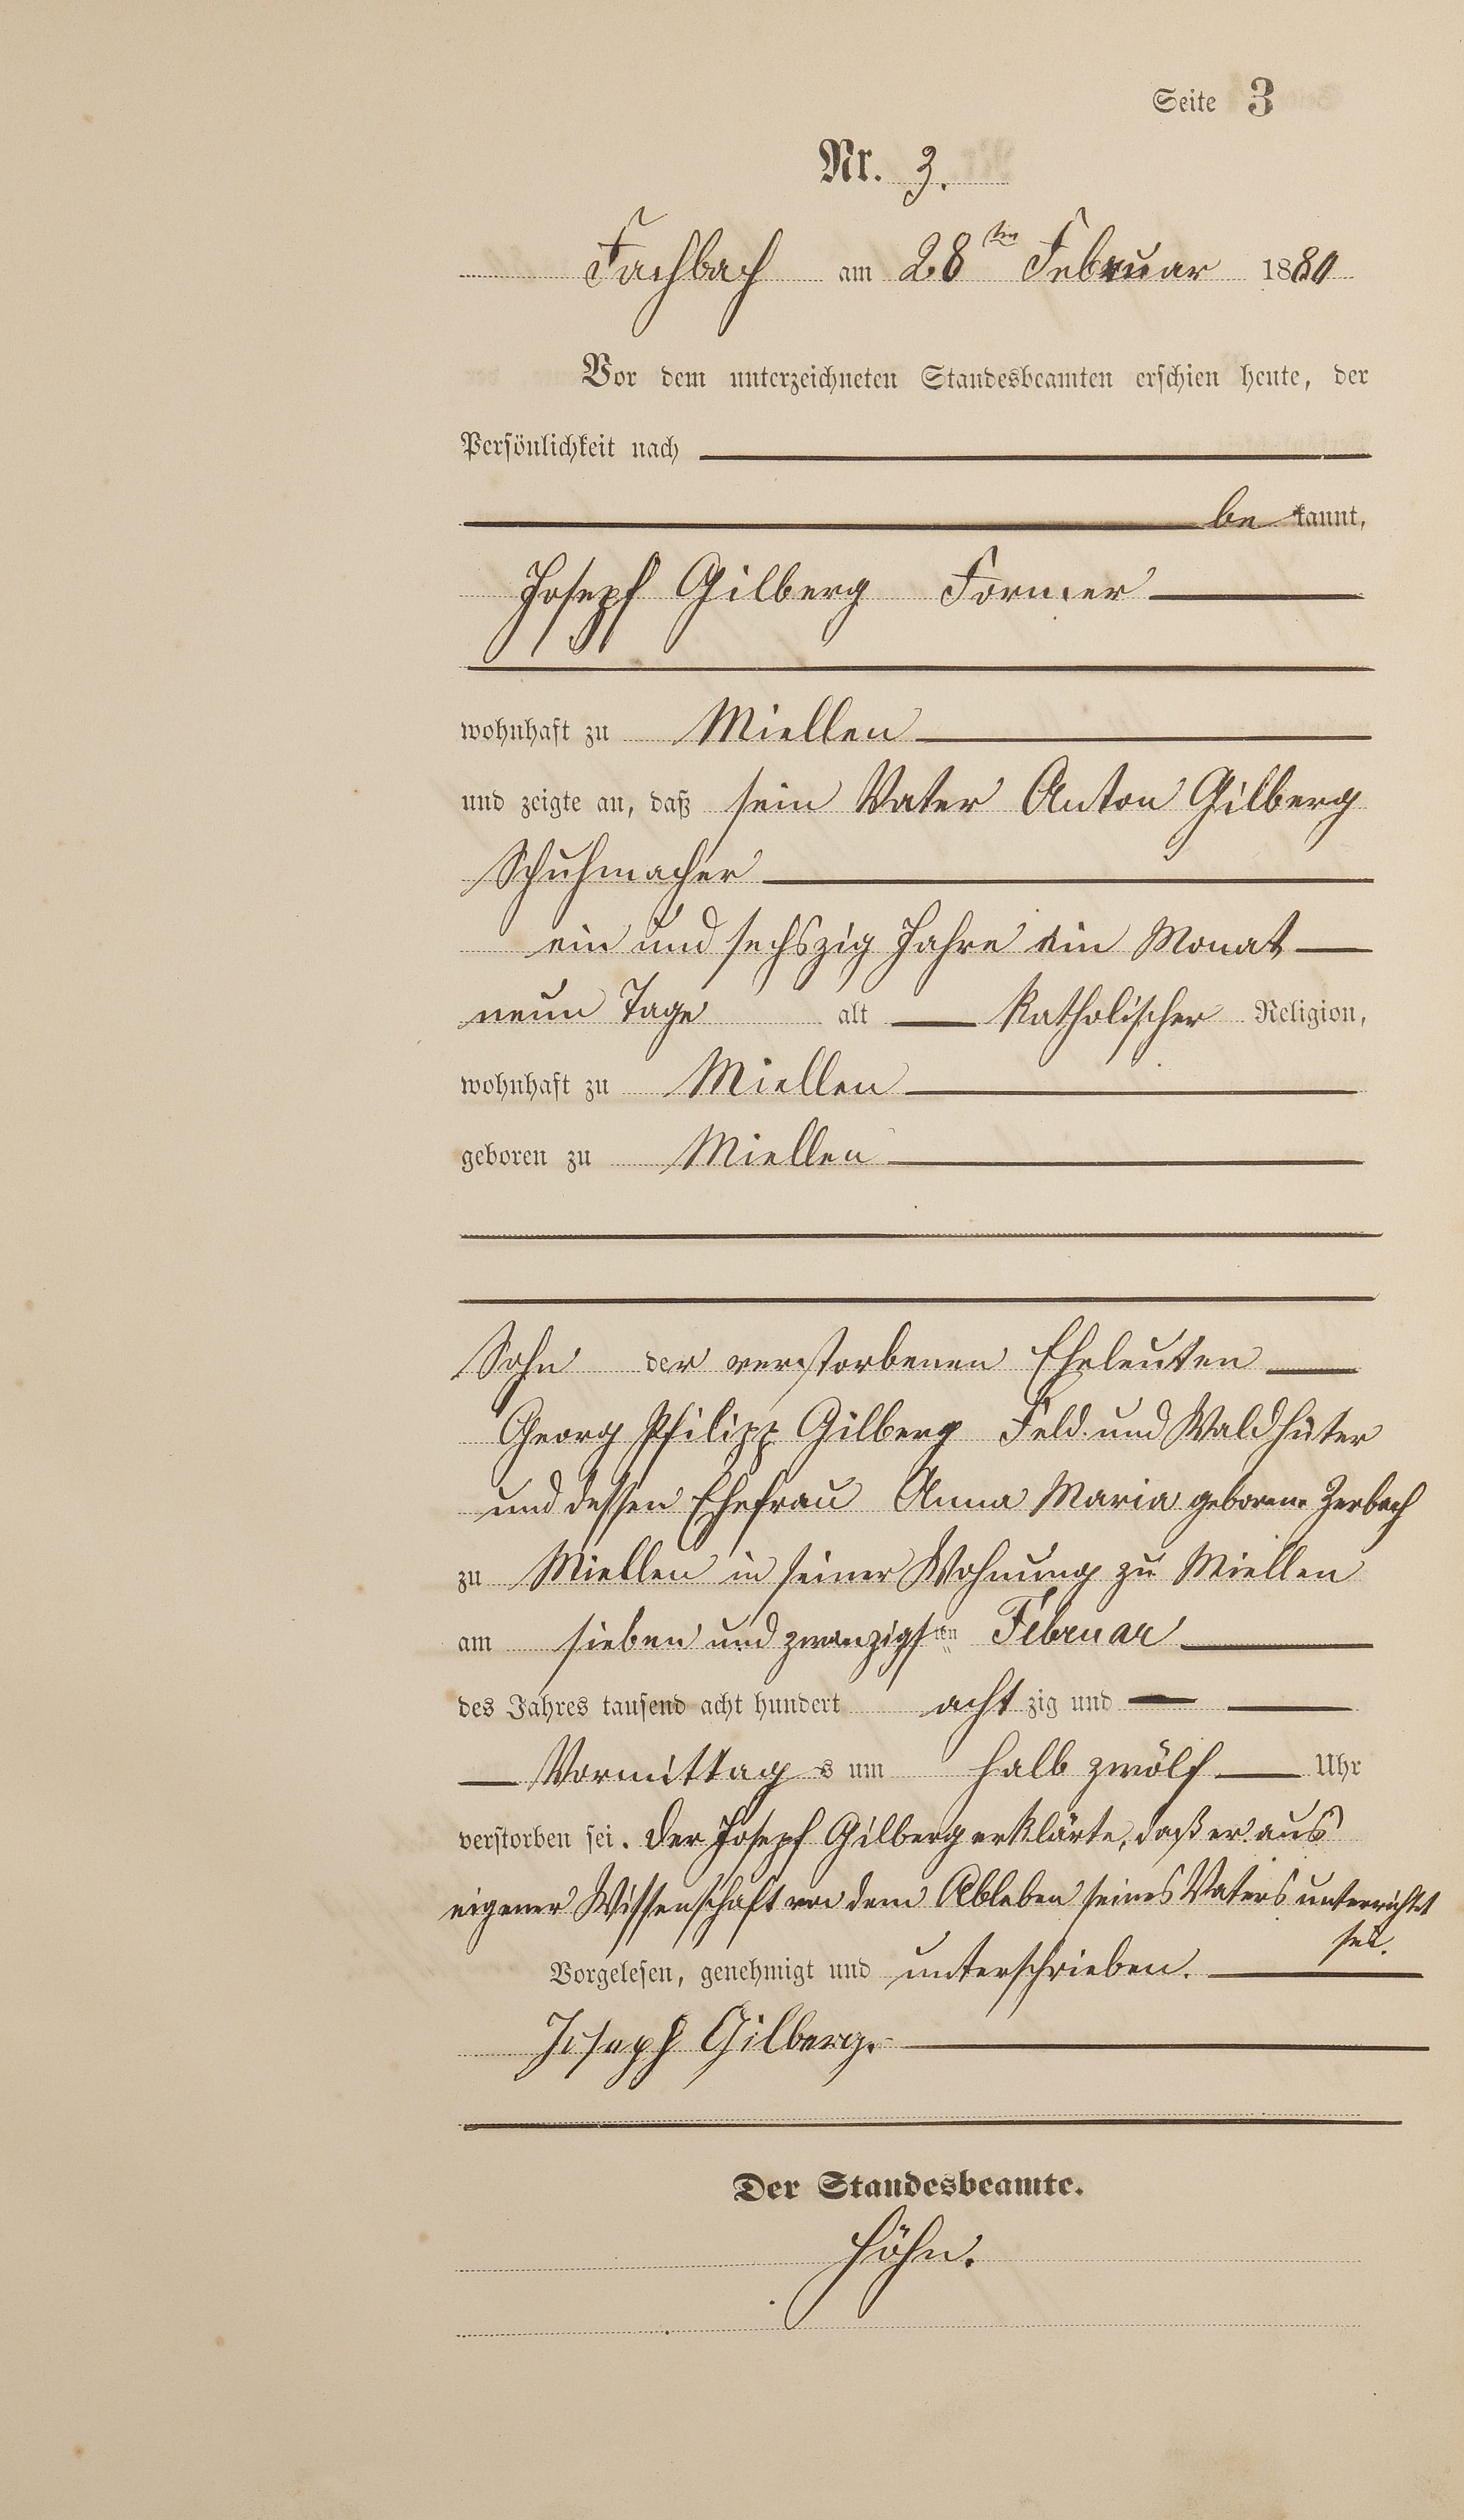 Seite 3
Nr. 3.
Fachbach am 28ten Februar 1880
Vor dem unterzeichneten Standesbeamten erschien heute, der
Persönlichkeit nach
be kannt,
Joseph Gilberg Former
wohnhaft zu Miellen
und zeigte an, daß sein Vater Anton Gilberg
Schuhmacher
ein und sechszig Jahre ein Monat
neun Tage alt katholischer Religion,
wohnhaft zu Miellen
geboren zu Miellen
Sohn der verstorbenen Eheleuten
Georg Philipp Gilberg Feld- und Waldhüter
und dessen Ehefrau Anna Maria geborene Zerbach
zu Miellen in seiner Wohnung zu Miellen
am sieben und zwanzigsten Februar
des Jahres tausend acht hundert acht zig und
Vormittag s um halb zwölf Uhr
verstorben sei. Der Joseph Gilberg erklärte, daß er aus
eigener Wissenschaft von dem Ableben seines Vaters unterrichtet
sei.
Vorgelesen, genehmigt und unterschrieben.
Joseph Gilberg.
Der Standesbeamte.
Höhn.